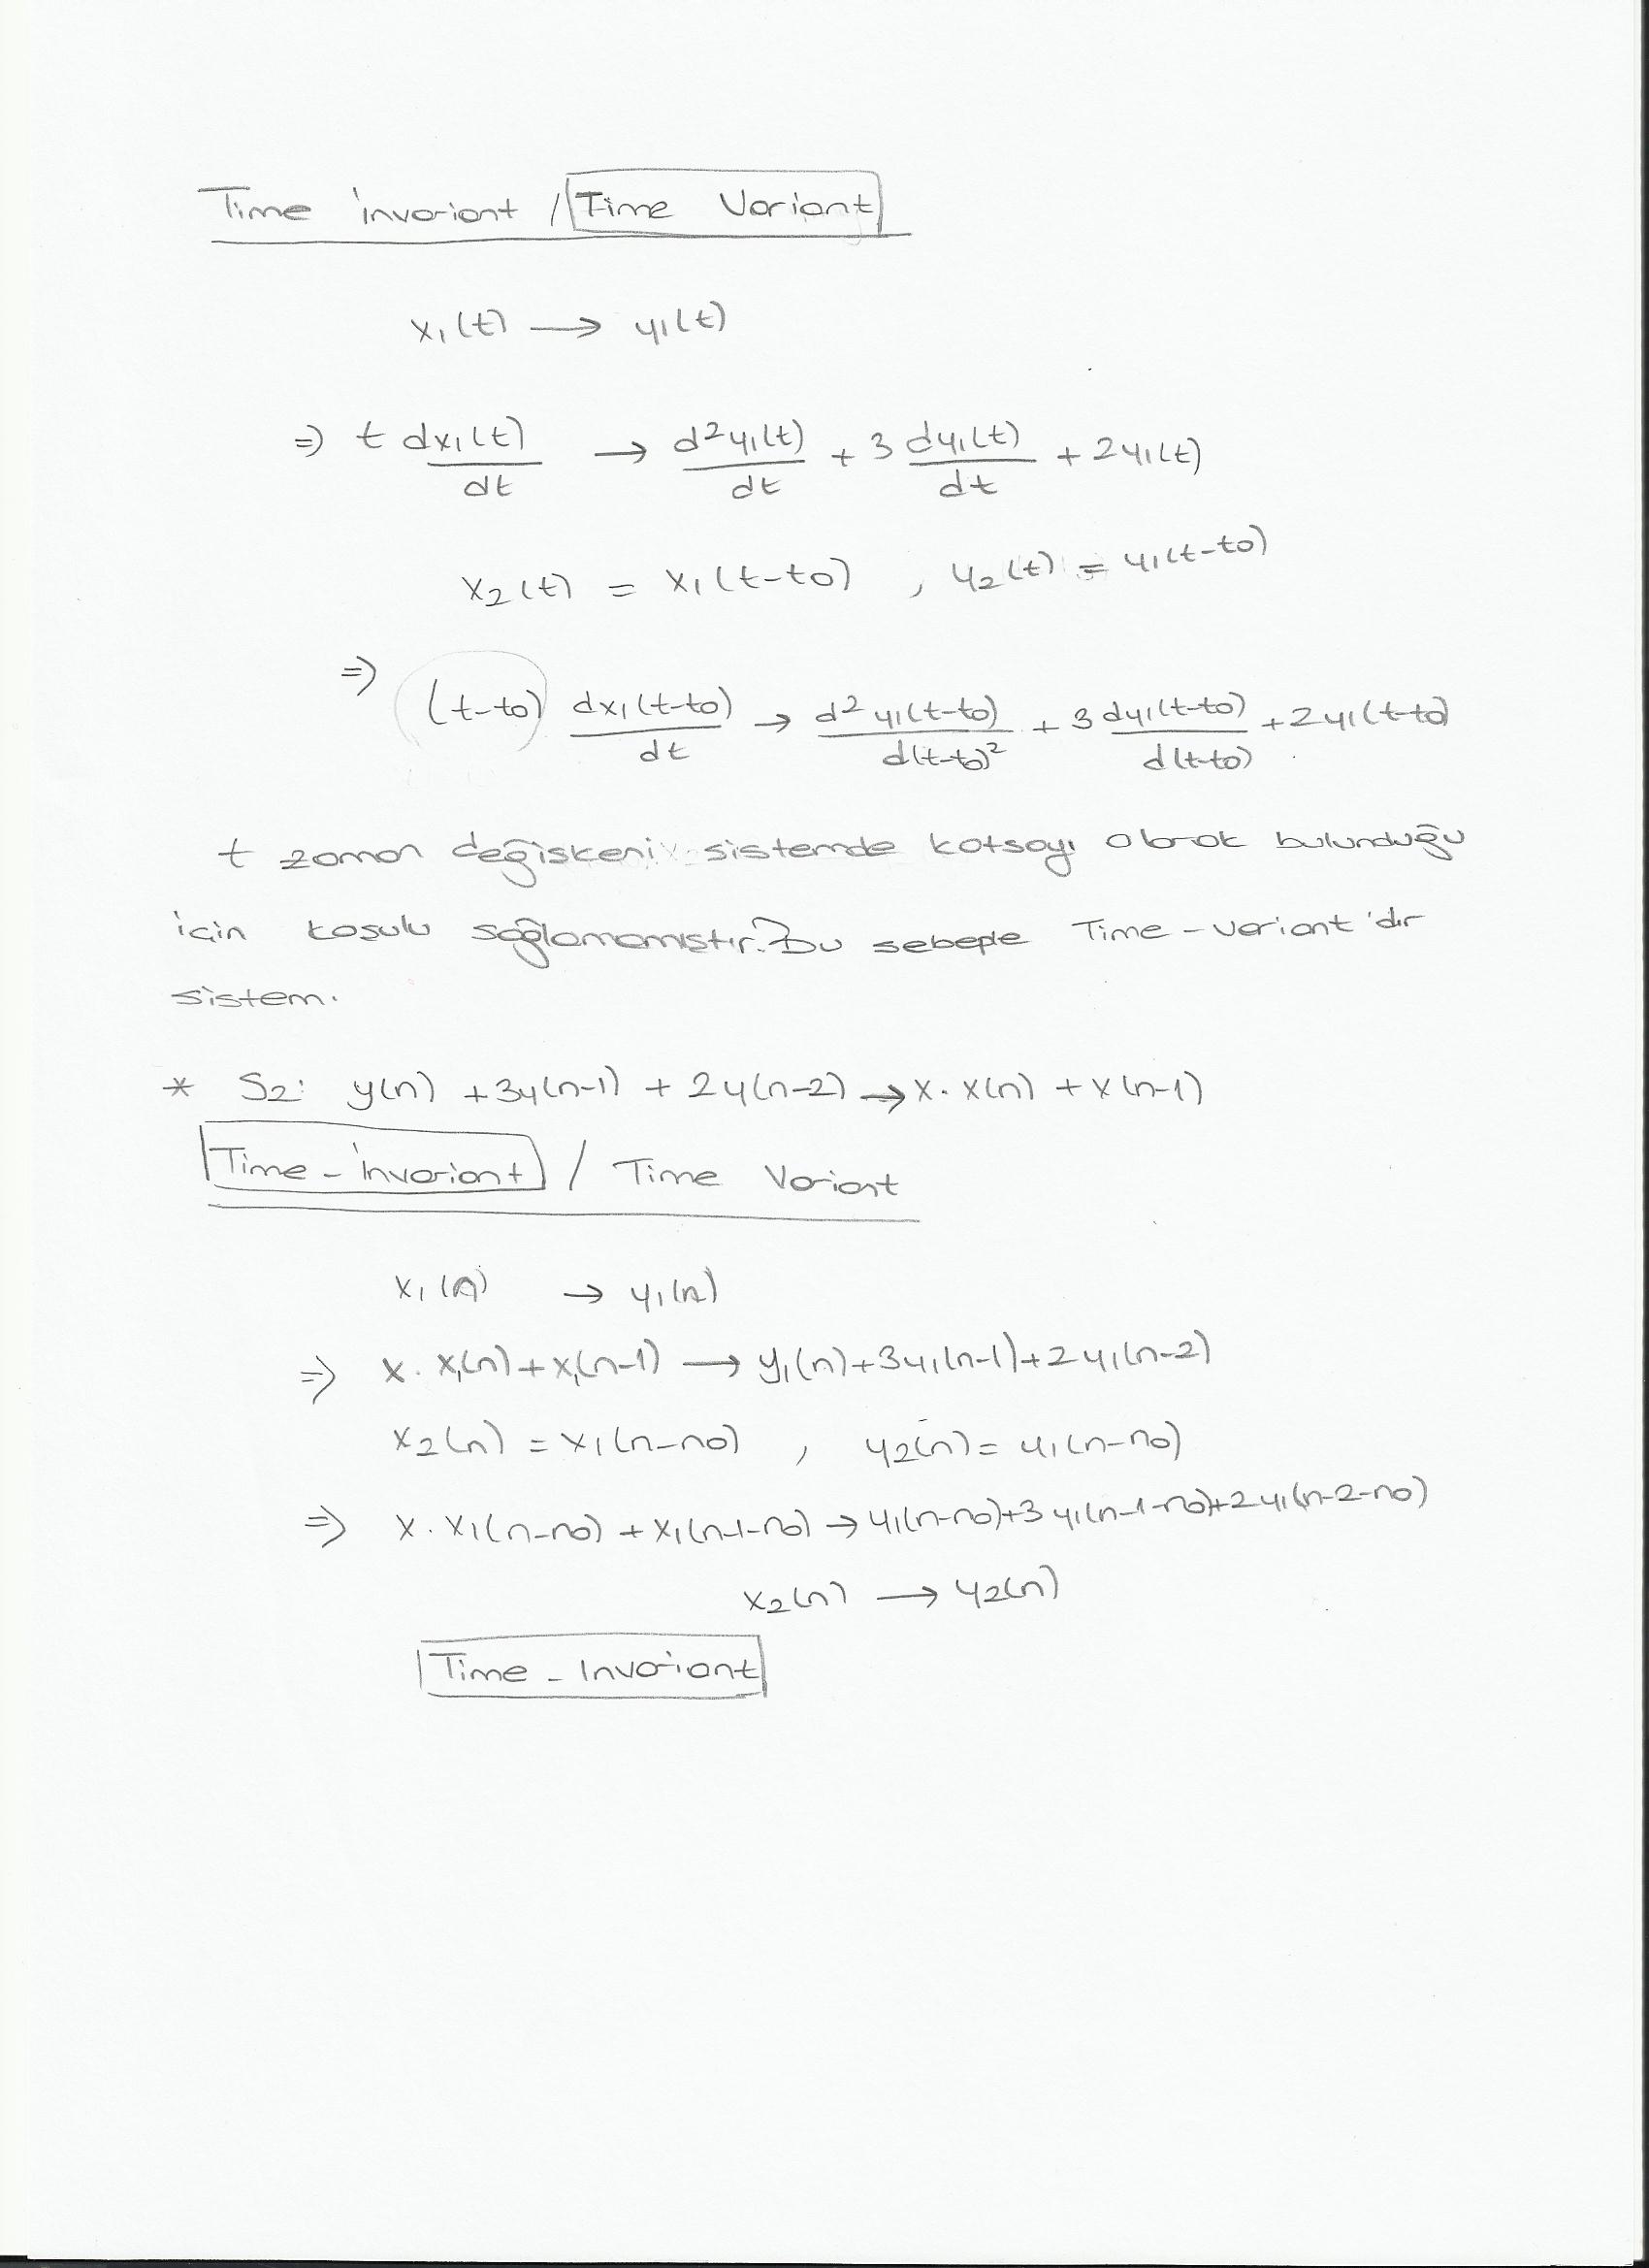 Time invariant / Time Variant
x1(t) → y1(t)
⇒ t dx1(t)/dt → d²y1(t)/dt + 3 dy1(t)/dt + 2y1(t)
x2(t) = x1(t-t0) , y2(t) = y1(t-t0)
⇒ (t-t0) dx1(t-t0)/dt → d²y1(t-t0)/d(t-t0)² + 3 dy1(t-t0)/d(t-t0) + 2y1(t-t0)
t zaman değişkeni sistemde katsayı olarak bulunduğu
için koşulu sağlamamıştır. Bu sebeple Time-variant'dır
sistem.
* S2: y(n) + 3y(n-1) + 2y(n-2) → x. x(n) + x(n-1)
Time - invariant / Time Variant
x1(n) → y1(n)
⇒ x. x1(n) + x1(n-1) → y1(n)+3y1(n-1)+2y1(n-2)
x2(n) = x1(n-n0) , y2(n) = y1(n-n0)
⇒ x. x1(n-n0) + x1(n-1-n0) → y1(n-n0)+3y1(n-1-n0)+2y1(n-2-n0)
x2(n) → y2(n)
Time - Invariant